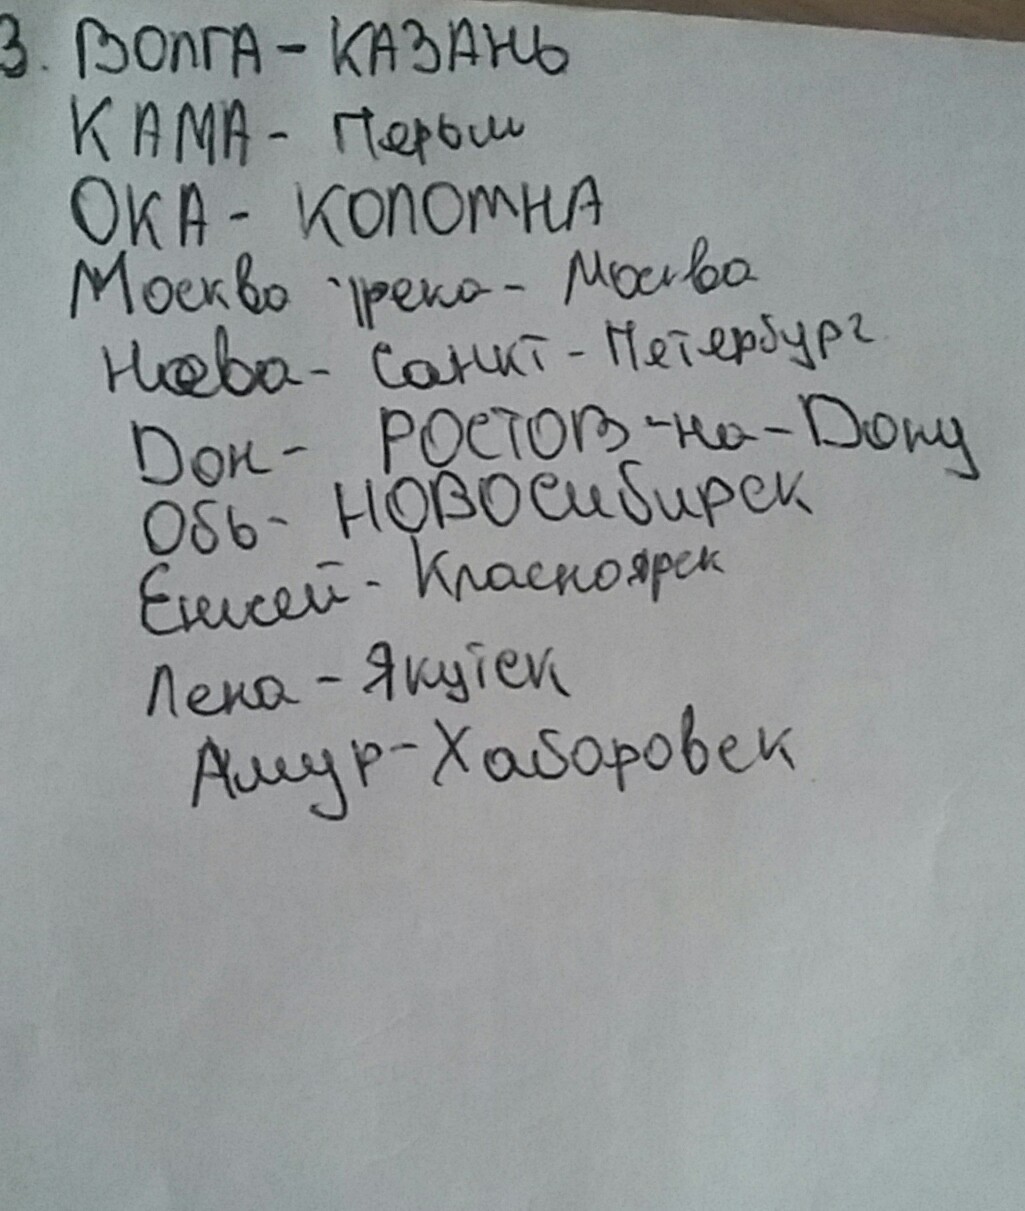 3. ВОЛГА - КАЗАНЬ
КАМА - Перьм
ОКА - КОЛОМНА
Москва река - Москва
Нева - Санкт - Петербург
Дон - РОСТОВ - на - Дону
Обь - НОВОСибирск
Енисей - Красноярск
Лена - Якутск
Амур - Хабаровск